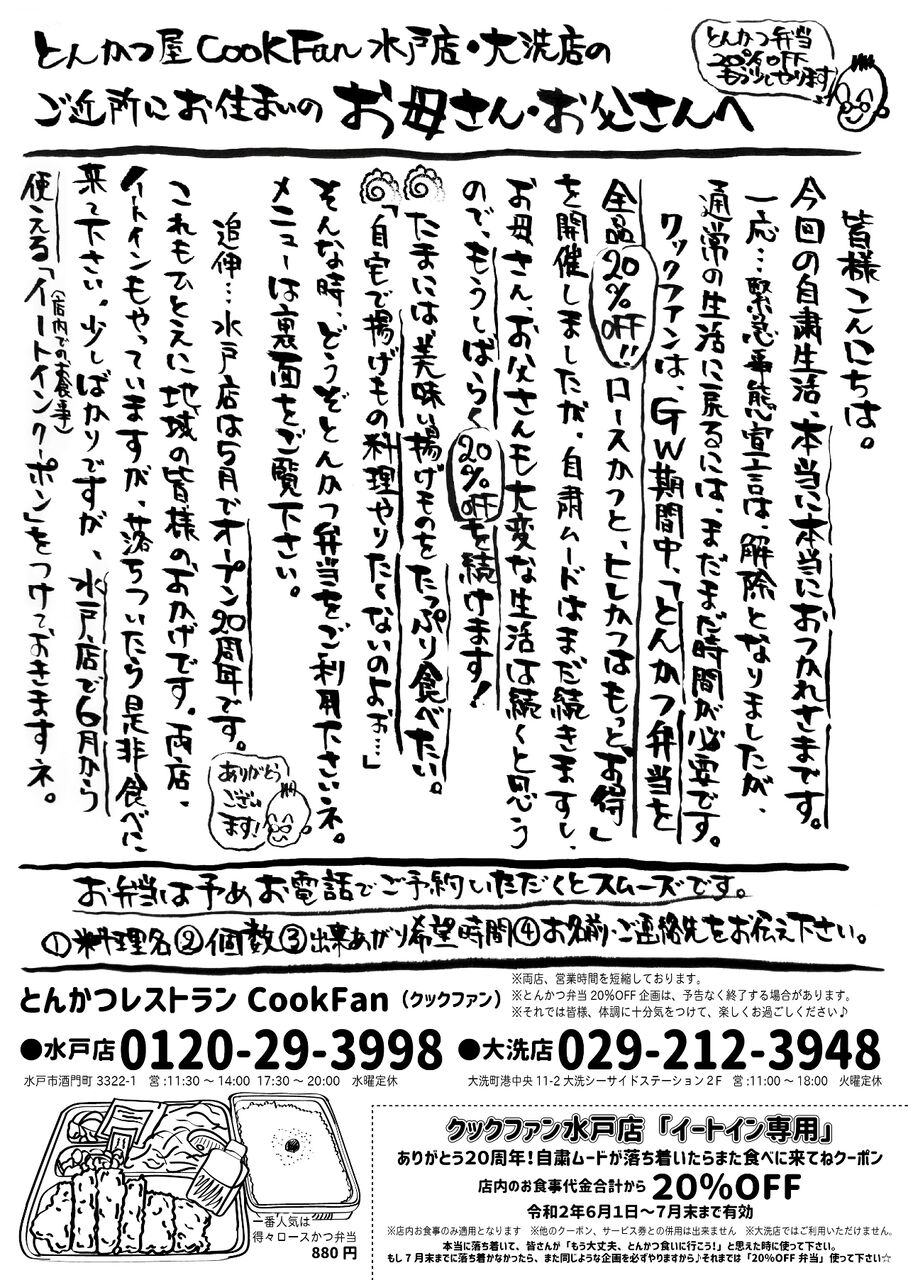 とんかつ屋CookFan水戸店・大洗店の
ご近所にお住まいのお母さん・お父さんへ
とんかつ弁当
20%OFF
もう少しやります
皆様こんにちは。
今回の自粛生活、本当に本当におつかれさまです。
一応…緊急事態宣言は、解除となりましたが、
通常の生活に戻るには、まだまだ時間が必要です。
クックファンは、GW期間中、「とんかつ弁当を
全品20%OFF!!ロースかつと、ヒレかつはもっとお得」
を開催しましたが、自粛ムードはまだ続きますし、
お母さん、お父さんも大変な生活は続くと思う
ので、もうしばらく20%OFFを続けます!
たまには、美味い揚げものをたっぷり食べたい。
「自宅で揚げもの料理やりたくないのよぉ…」
そんな時、どうぞとんかつ弁当をご利用下さいネ。
メニューは裏面をご覧下さい。
追伸…水戸店は5月でオープン20周年です。
これもひとえに地域の皆様のおかげです。両店、
イートインもやっていますが、落ちついたら是非食べに
来て下さい。少しばかりですが、水戸店で6月から
使える「イートインクーポン」をつけておきますネ。
(店内でのお食事)
ありがとう
ござい
ます!
お弁当は予めお電話でご予約いただくとスムーズです。
①料理名②個数③出来あがり希望時間④お名前・ご連絡先をお伝え下さい。
とんかつレストラン CookFan(クックファン)
※両店、営業時間を短縮しております。
※とんかつ弁当 20%OFF 企画は、予告なく終了する場合があります。
※それでは皆様、体調に十分気をつけて、楽しくお過ごしください♪
●水戸店 0120-29-3998
水戸市酒門町 3322-1 営:11:30 ～ 14:00 17:30 ～ 20:00 水曜定休
●大洗店 029-212-3948
大洗町港中央 11-2 大洗シーサイドステーション2F 営:11:00 ～ 18:00 火曜定休
一番人気は
得々ロースかつ弁当
880 円
クックファン水戸店「イートイン専用」
ありがとう20周年!自粛ムードが落ち着いたらまた食べに来てねクーポン
店内のお食事代金合計から 20%OFF
令和2年6月1日～7月末まで有効
※店内お食事のみ適用となります ※他のクーポン、サービス券との併用は出来ません ※大洗店ではご利用いただけません。
本当に落ち着いて、皆さんが「もう大丈夫、とんかつ食いに行こう!」と思えた時に使って下さい。
もし7月末までに落ち着かなかったら、また同じような企画を必ずやりますから♪それまでは「20%OFF 弁当」使って下さい☆